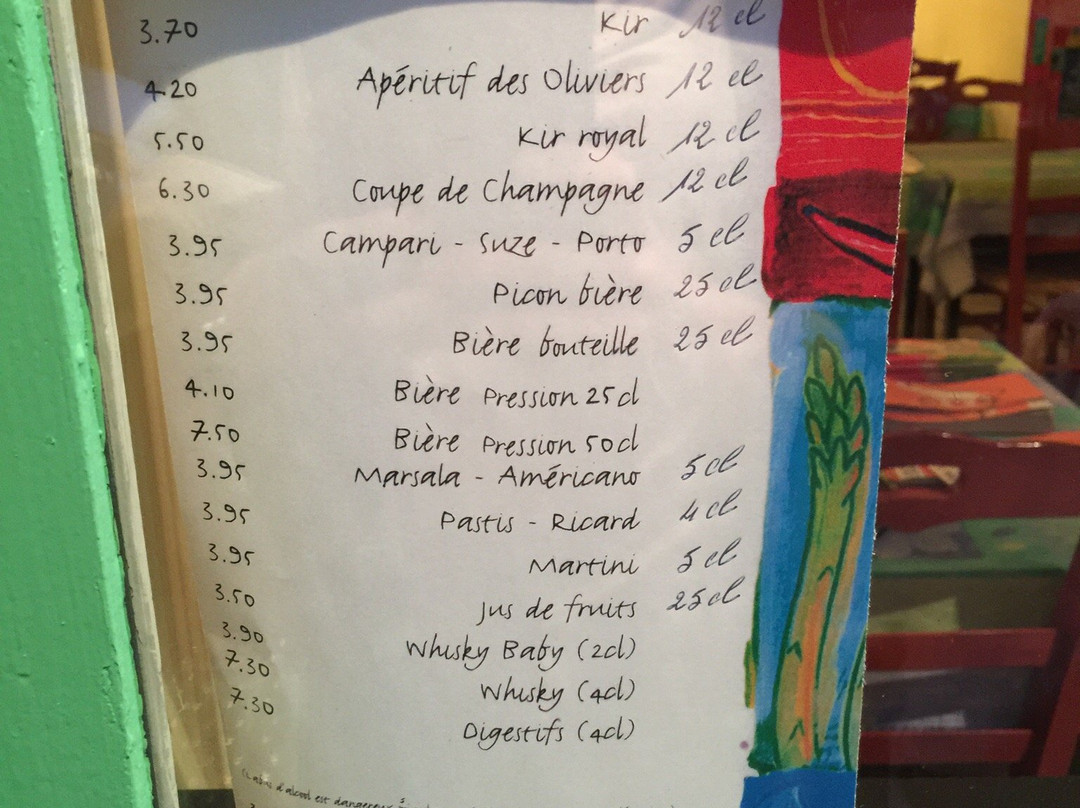 3.70 Kir 12 cl
4.20 Apéritif des Oliviers 12 cl
5.50 Kir royal 12 cl
6.30 Coupe de Champagne 12 cl
3.95 Campari - Suze - Porto 5 cl
3.95 Picon bière 25 cl
3.95 Bière bouteille 25 cl
4.10 Bière Pression 25cl
7.50 Bière Pression 50cl
3.95 Marsala - Américano 5cl
3.95 Pastis - Ricard 4 cl
3.95 Martini 5 cl
3.50 Jus de fruits 25cl
3.90 Whisky Baby (2cl)
7.30 Whisky (4cl)
7.30 Digestifs (4cl)
L'abus d'alcool est dangereux